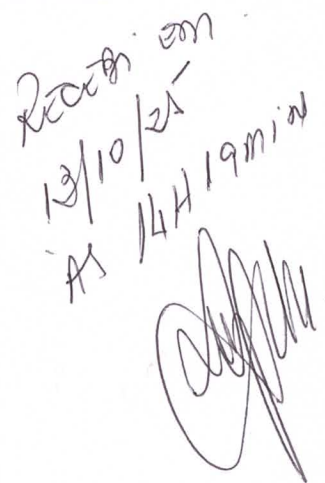 Recebi em
13/10/25
às 14H19min